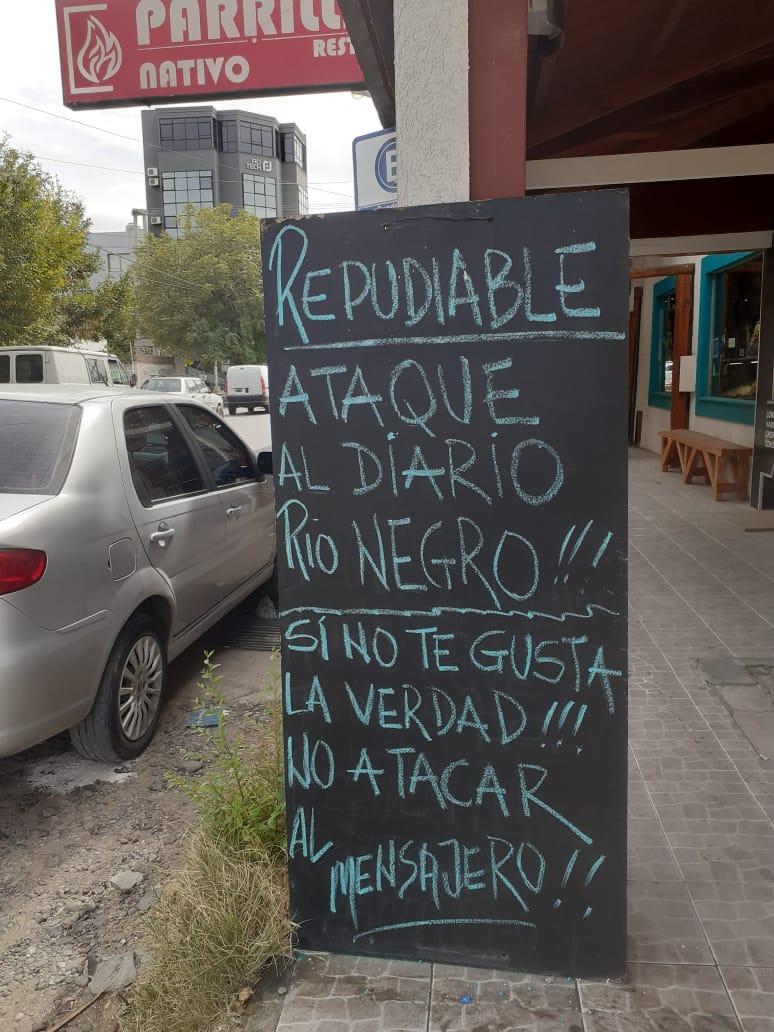 PARRILL
REST
NATIVO
FD
TECH
E
REPUDIABLE
ATAQUE
AL DIARIO
RIO NEGRO!!!
SI NO TE GUSTA
LA VERDAD!!!
NO ATACAR
AL MENSAJERO!!